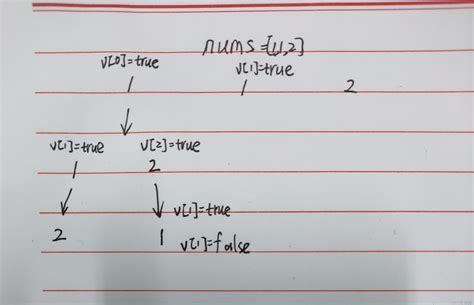 nums=[1,1,2]
v[0]=true v[1]=true
1 1 2
v[1]=true v[2]=true
1 2
v[1]=true
2 1 v[1]=false